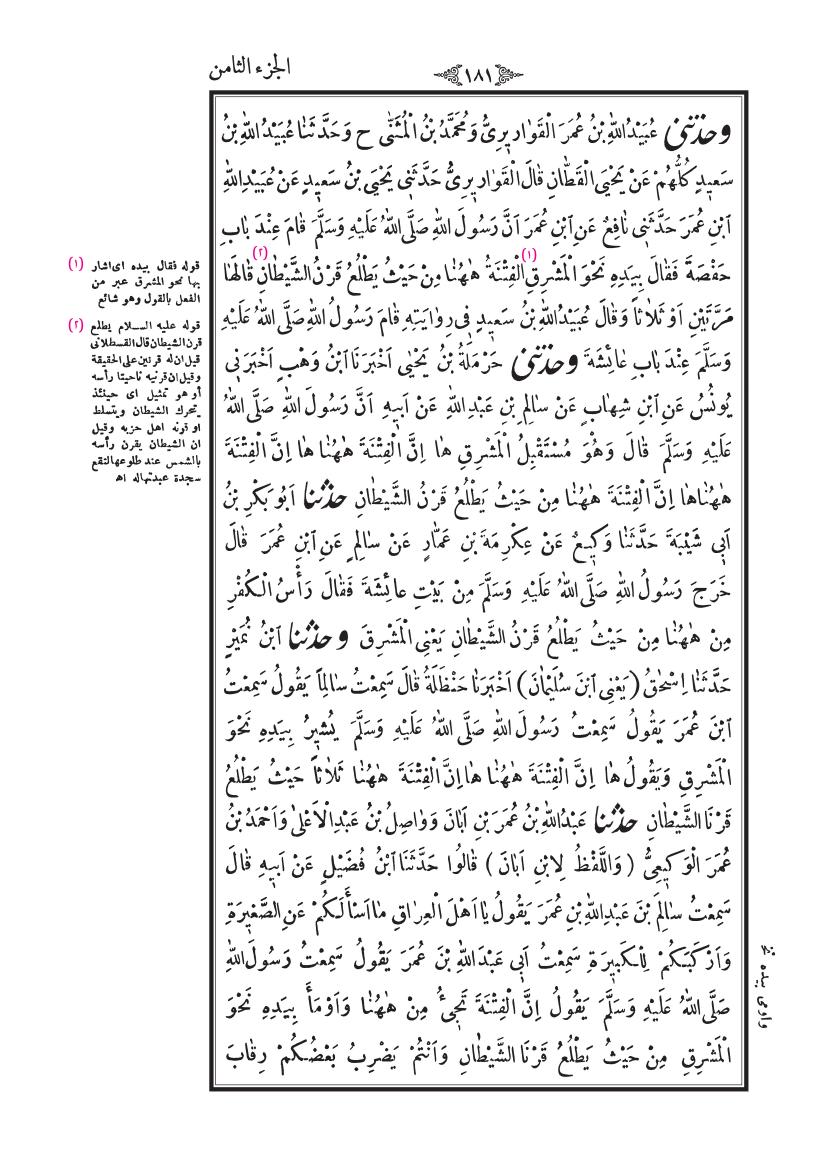 الجزء الثامن
١٨١
وَحَدَّثَنِي عُبَيْدُ اللهِ بْنُ عُمَرَ الْقَوَارِيرِيُّ وَمُحَمَّدُ بْنُ الْمُثَنَّى ح وَحَدَّثَنَا عُبَيْدُ اللهِ بْنُ
سَعِيدٍ كُلُّهُمْ عَنْ يَحْيَى الْقَطَّانِ قَالَ الْقَوَارِيرِيُّ حَدَّثَنِي يَحْيَى بْنُ سَعِيدٍ عَنْ عُبَيْدِ اللهِ
ابْنِ عُمَرَ حَدَّثَنِي نَافِعٌ عَنِ ابْنِ عُمَرَ اَنَّ رَسُولَ اللهِ صَلَّى اللهُ عَلَيْهِ وَسَلَّمَ قَامَ عِنْدَ بَابِ
حَفْصَةَ فَقَالَ بِيَدِهِ نَحْوَ الْمَشْرِقِ (١) الْفِتْنَةُ هٰهُنَا مِنْ حَيْثُ يَطْلُعُ قَرْنُ الشَّيْطَانِ (٢) قَالَهَا
مَرَّتَيْنِ اَوْ ثَلَاثاً وَقَالَ عُبَيْدُ اللهِ بْنُ سَعِيدٍ فِي رِوَايَتِهِ قَامَ رَسُولُ اللهِ صَلَّى اللهُ عَلَيْهِ
وَسَلَّمَ عِنْدَ بَابِ عَائِشَةَ وَحَدَّثَنِي حَرْمَلَةُ بْنُ يَحْيَى اَخْبَرَنَا ابْنُ وَهْبٍ اَخْبَرَنِي
يُونُسُ عَنِ ابْنِ شِهَابٍ عَنْ سَالِمِ بْنِ عَبْدِ اللهِ عَنْ اَبِيهِ اَنَّ رَسُولَ اللهِ صَلَّى اللهُ
عَلَيْهِ وَسَلَّمَ قَالَ وَهُوَ مُسْتَقْبِلُ الْمَشْرِقِ هَا اِنَّ الْفِتْنَةَ هٰهُنَا هَا اِنَّ الْفِتْنَةَ
هٰهُنَا هَا اِنَّ الْفِتْنَةَ هٰهُنَا مِنْ حَيْثُ يَطْلُعُ قَرْنُ الشَّيْطَانِ حَدَّثَنَا اَبُو بَكْرِ بْنُ
اَبِي شَيْبَةَ حَدَّثَنَا وَكِيعٌ عَنْ عِكْرِمَةَ بْنِ عَمَّارٍ عَنْ سَالِمٍ عَنِ ابْنِ عُمَرَ قَالَ
خَرَجَ رَسُولُ اللهِ صَلَّى اللهُ عَلَيْهِ وَسَلَّمَ مِنْ بَيْتِ عَائِشَةَ فَقَالَ رَأْسُ الْكُفْرِ
مِنْ هٰهُنَا مِنْ حَيْثُ يَطْلُعُ قَرْنُ الشَّيْطَانِ يَعْنِي الْمَشْرِقَ وَحَدَّثَنَا ابْنُ نُمَيْرٍ
حَدَّثَنَا اِسْحٰقُ (يَعْنِي ابْنَ سُلَيْمَانَ) اَخْبَرَنَا حَنْظَلَةُ قَالَ سَمِعْتُ سَالِماً يَقُولُ سَمِعْتُ
ابْنَ عُمَرَ يَقُولُ سَمِعْتُ رَسُولَ اللهِ صَلَّى اللهُ عَلَيْهِ وَسَلَّمَ يُشِيرُ بِيَدِهِ نَحْوَ
الْمَشْرِقِ وَيَقُولُ هَا اِنَّ الْفِتْنَةَ هٰهُنَا هَا اِنَّ الْفِتْنَةَ هٰهُنَا ثَلَاثاً حَيْثُ يَطْلُعُ
قَرْنَا الشَّيْطَانِ حَدَّثَنَا عَبْدُ اللهِ بْنُ عُمَرَ بْنِ اَبَانَ وَوَاصِلُ بْنُ عَبْدِ الْاَعْلٰى وَاَحْمَدُ بْنُ
عُمَرَ الْوَكِيعِيُّ (وَاللَّفْظُ لِابْنِ اَبَانَ) قَالُوا حَدَّثَنَا ابْنُ فُضَيْلٍ عَنْ اَبِيهِ قَالَ
سَمِعْتُ سَالِمَ بْنَ عَبْدِ اللهِ بْنِ عُمَرَ يَقُولُ يَا اَهْلَ الْعِرَاقِ مَا اَسْأَلَكُمْ عَنِ الصَّغِيرَةِ
وَاَرْكَبَكُمْ لِلْكَبِيرَةِ سَمِعْتُ اَبِي عَبْدَ اللهِ بْنَ عُمَرَ يَقُولُ سَمِعْتُ رَسُولَ اللهِ
صَلَّى اللهُ عَلَيْهِ وَسَلَّمَ يَقُولُ اِنَّ الْفِتْنَةَ تَجِيءُ مِنْ هٰهُنَا وَاَوْمَأَ بِيَدِهِ نَحْوَ
الْمَشْرِقِ مِنْ حَيْثُ يَطْلُعُ قَرْنَا الشَّيْطَانِ وَاَنْتُمْ يَضْرِبُ بَعْضُكُمْ رِقَابَ
(١) قوله فقال بيده اى اشار
بها نحو المشرق عبر من
الفعل بالقول وهو شائع
(٢) قوله عليه السلام يطلع
قرن الشيطان قال القسطلانى
قيل ان له قرنين على الحقيقة
وقيل ان قرنيه ناحيتا رأسه
أو هو تمثيل اى حينئذ
يتحرك الشيطان ويتسلط
او قرنه اهل حزبه وقيل
ان الشيطان يقرن رأسه
بالشمس عند طلوعها لتقع
سجدة عبدتها له اه
واومى بيده نخ